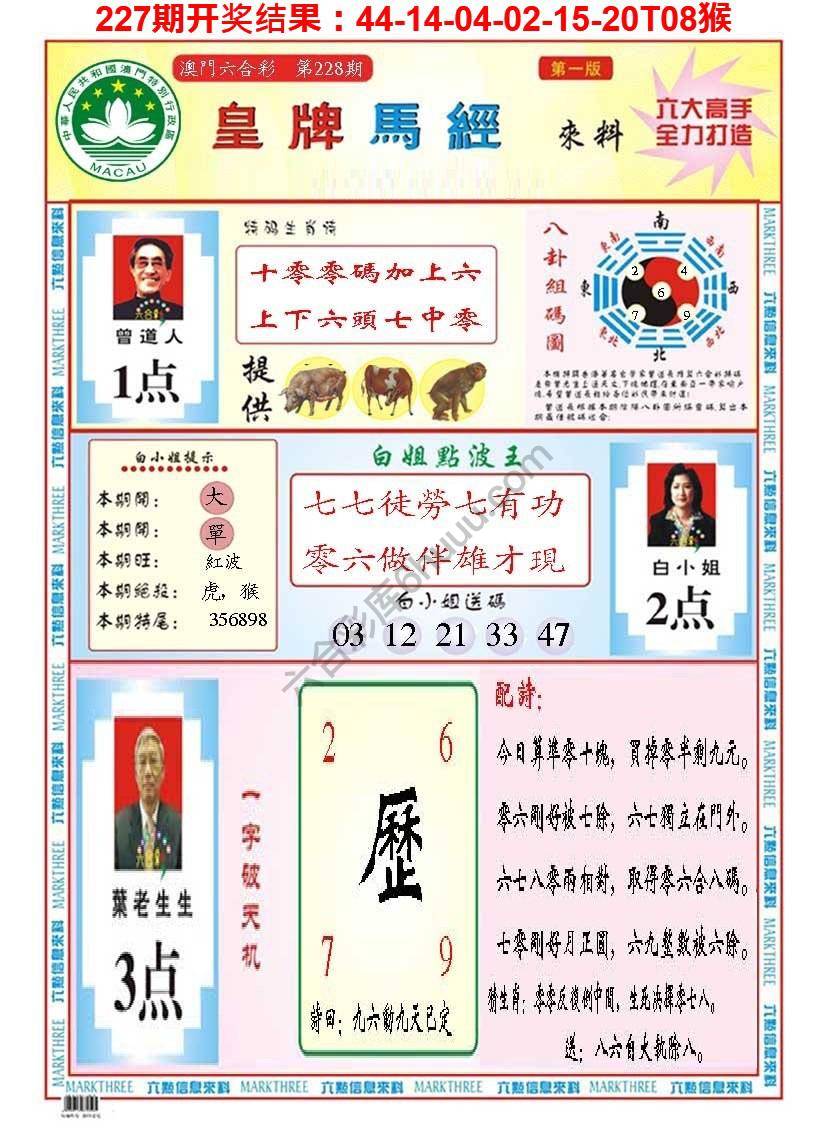 227期开奖结果：44-14-04-02-15-20T08猴
澳門六合彩　第228期
第一版
中華人民共和國澳門特別行政區
MACAU
皇牌馬經
來料
六大高手
全力打造
1点
曾道人
特码生肖诗
十零零碼加上六
上下六頭七中零
提供
八卦組碼圖
南
東南
西南
東
西
東北
西北
北
2
4
6
7
9
白小姐提示
本期開：
大
本期開：
單
本期旺：
紅波
本期絕殺：
虎，猴
本期特尾：
356898
白姐點波王
七七徒勞七有功
零六做伴雄才現
白小姐送碼
03 12 21 33 47
白小姐
2点
葉老生生
3点
一字破天机
2
6
歷
7
9
詩曰：九六勸九天已定
配詩：
今日算準零十塊，買掉零半剩九元。
零六剛好被七除，六七獨立在門外。
六七八零兩相對，取得零六合八碼。
七零剛好月正圓，六九整數被六除。
猜生肖：零零反復倒中間，生死決擇零七八。
送：八六自大執除八。
六合彩库6huuu.com
MARKTHREE 六點信息來料 MARKTHREE 六點信息來料 MARKTHREE 六點信息來料 MARKTHREE